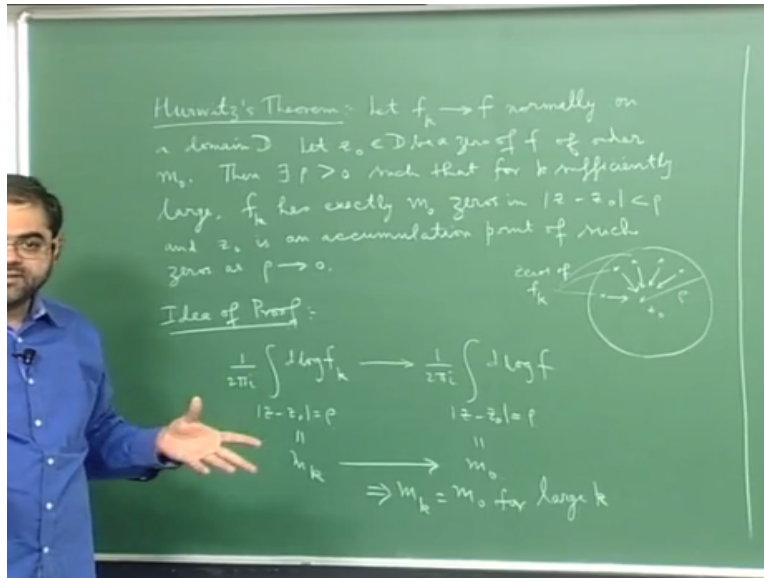 Hurwitz's Theorem:- Let f_k → f normally on
a domain D Let z_0 ∈ D be a zero of f of order
m_0. Then ∃ ρ > 0 such that for k sufficiently
large, f_k has exactly m_0 zeros in |z - z_0| < ρ
and z_0 is an accumulation point of such
zeros as ρ → 0.
zeros of
f_k
ρ
z_0
Idea of Proof:-
1/2πi ∫ d log f_k → 1/2πi ∫ d log f
|z - z_0| = ρ |z - z_0| = ρ
= =
m_k → m_0
⇒ m_k = m_0 for large k